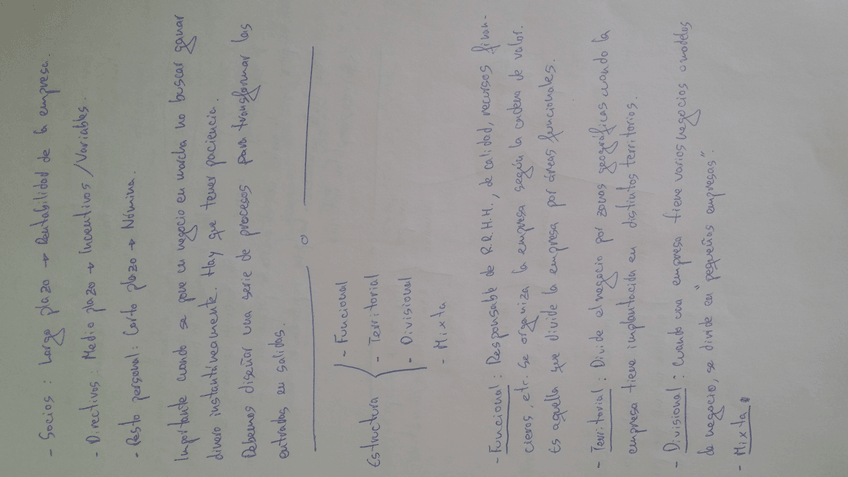 - Socios : Largo plazo → Rentabilidad de la empresa.
- Directivos : Medio plazo → Incentivos / Variables.
- Resto personal : Corto plazo → Nómina.
Importante cuando se pone en negocio en marcha no buscar ganar
dinero instantáneamente. Hay que tener paciencia.
Debemos diseñar una serie de procesos para transformar las
entradas en salidas.
Estructura
- Funcional
- Territorial
- Divisional
- Mixta
- Funcional : Responsable de RR.HH., de calidad, recursos finan-
cieros, etc. Se organiza la empresa según la cadena de valor.
Es aquella que divide la empresa por áreas funcionales.
- Territorial : Divide el negocio por zonas geográficas cuando la
empresa tiene implantación en distintos territorios.
- Divisional : Cuando una empresa tiene varios negocios o modelos
de negocio, se divide en "pequeñas empresas".
- Mixta.